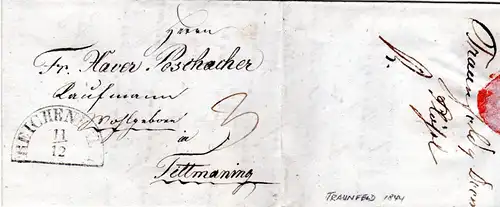 Herrn
Fr. Xaver Poschacher
Kaufmann
Wohlgeborn
in
Tittmaning
3
REICHENHALL
11
12
Traunfeld
TRAUNFELD 1844